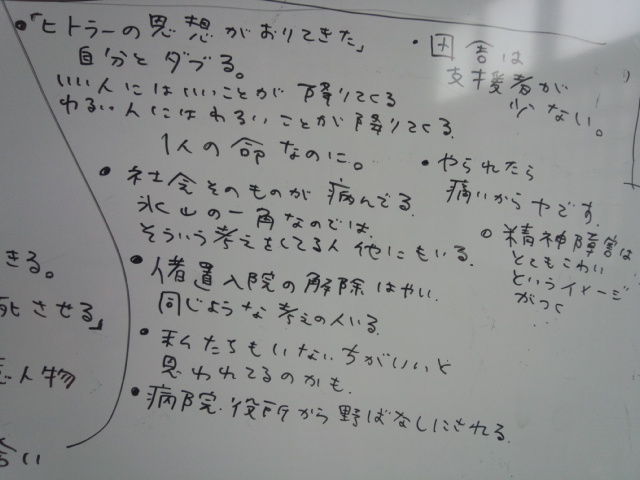 ・「ヒトラーの思想がおりてきた」
自分とダブる。
いい人にはいいことが降りてくる
わるい人にはわるいことが降りてくる.
1人の命なのに。
・社会そのものが病んでる.
氷山の一角なのでは.
そういう考えをしてる人他にもいる.
・措置入院の解除はやい.
同じような考えの人いる.
・私たちもいない方がいいと
思われてるのかも.
・病院.役所から野ばなしにされる.
・田舎は
支援者が
少ない。
・やられたら
痛いからヤです
○精神障害は
とてもこわい
というイメージ
がつく
きる。
死させる」
人物
い